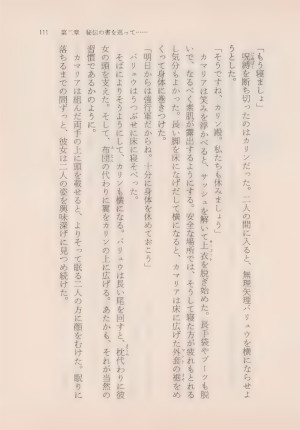 111　第二章　秘伝の書を巡って……
「もう寝ましょ」
呪縛を断ち切ったのはカリンだった。二人の間に入ると、無理矢理バリュウを横にならせよ
うとした。
「そうですね、カリン殿。私たちも休みましょう」
カマリアは笑みを浮かべると、サッシュを解いて上衣を脱ぎ始めた。長手袋やブーツも脱
いで、なるべく素肌が露出するようにする。安全な場所では、そうして寝た方が疲れもとれる
し気分もよかった。長い脚を床になげだして横になると、カマリアは床に広げた外套の裾をめ
くって身体に巻きつけた。
「明日からは強行軍だからね。十分に身体を休めておこう」
バリュウはうつぶせに床に寝そべった。
そばによりそうようにして、カリンも横になる。バリュウは長い尾を回すと、枕代わりに彼
女の頭を支えた。そして、布団の代わりに翼をカリンの上に広げる。あたかも、それが当然の
習慣であるかのように。
カマリアは組んだ両手の上に頭を載せると、よりそって眠る二人の方に顔をむけた。眠りに
落ちるまでの間ずっと、彼女は二人の姿を興味深げに見つめ続けた。